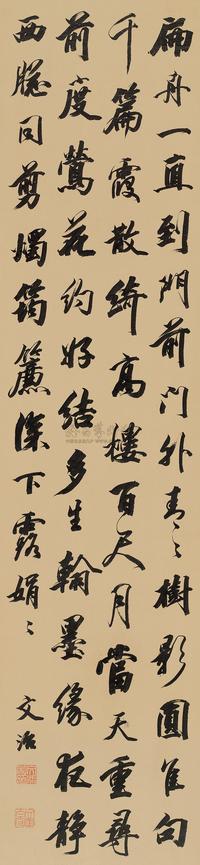 扁舟一直到門前門外青々樹影圓佳句
千篇霞散綺高樓百尺月當天重尋
前度鶯花約好結多生翰墨緣夜靜
西牕同剪燭筠簾深下露娟々
文治